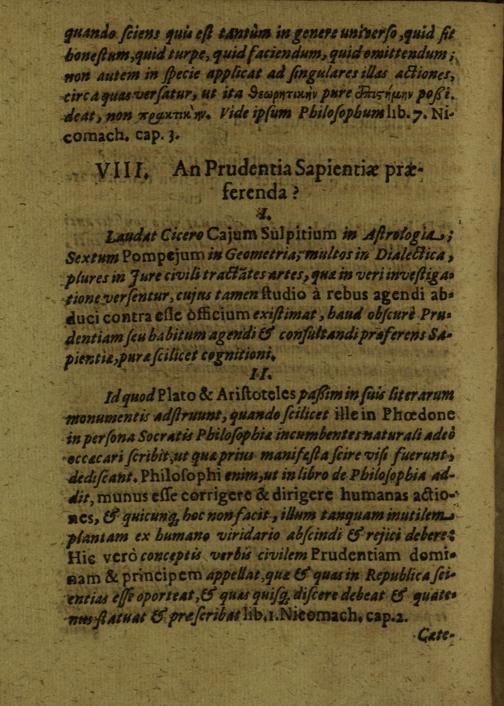 quando ſciens quis eſt tantùm in genere univerſo, quid ſit
honeſtum, quid turpe, quid faciendum, quid omittendum;
non autem in ſpecie applicat ad ſingulares illas actiones,
circa quas verſatur, ut ita θεωρητικὴν pure ἐπιςήμην poßi-
deat, non πρακτικὴν. Vide ipſum Philoſophum lib. 7. Ni-
comach. cap. 3.
VIII. An Prudentia Sapientiæ præ-
ferenda?
I.
Laudat Cicero Cajum Sulpitium in Aſtrologia;
Sextum Pompejum in Geometria; multos in Dialectica,
plures in Jure civili tractātes artes, quæ in veri inveſtiga-
tione verſentur, cujus tamen ſtudio à rebus agendi ab-
duci contra eſſe officium exiſtimat, haud obſcurè Pru-
dentiam ſeu habitum agendi & conſultandi præferens Sa-
pientiæ, puræ ſcilicet cognitioni.
II.
Id quod Plato & Ariſtoteles paßim in ſuis literarum
monumentis adſtruunt, quando ſcilicet ille in Phœdone
in perſona Socratis Philoſophiæ incumbentes naturali adeò
occæcari ſcribit, ut quæ prius manifeſta ſcire viſi fuerunt,
dediſcant. Philoſophi enim, ut in libro de Philoſophia ad-
dit, munus eſſe corrigere & dirigere humanas actio-
nes, & quicunq; hoc non facit, illum tanquam inutilem
plantam ex humano viridario abſcindi & rejici debere:
Hic verò conceptis verbis civilem Prudentiam domi-
nam & principem appellat, quæ & quas in Republica ſci-
entias eſſe oporteat, & quas quiſq; diſcere debeat & quate-
nus ſtatuat & præſcribat lib. 1. Nicomach. cap. 2.
Cæte-